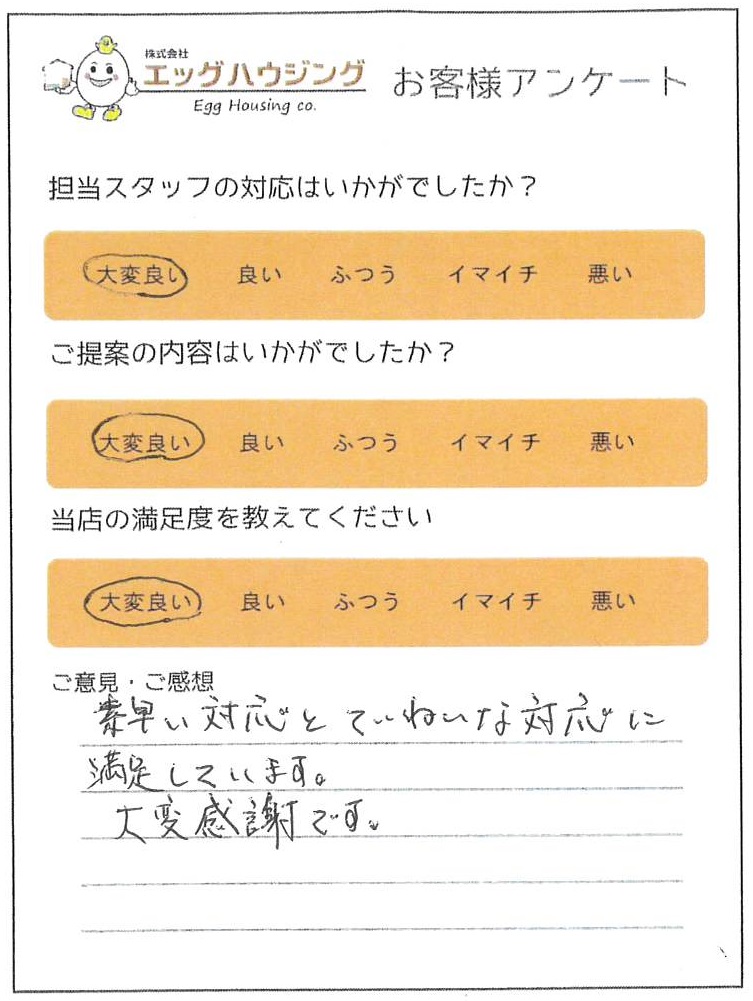 株式会社
エッグハウジング
Egg Housing co.
お客様アンケート
担当スタッフの対応はいかがでしたか？
大変良い 良い ふつう イマイチ 悪い
ご提案の内容はいかがでしたか？
大変良い 良い ふつう イマイチ 悪い
当店の満足度を教えてください
大変良い 良い ふつう イマイチ 悪い
ご意見・ご感想
素早い対応とていねいな対応に
満足しています。
大変感謝です。